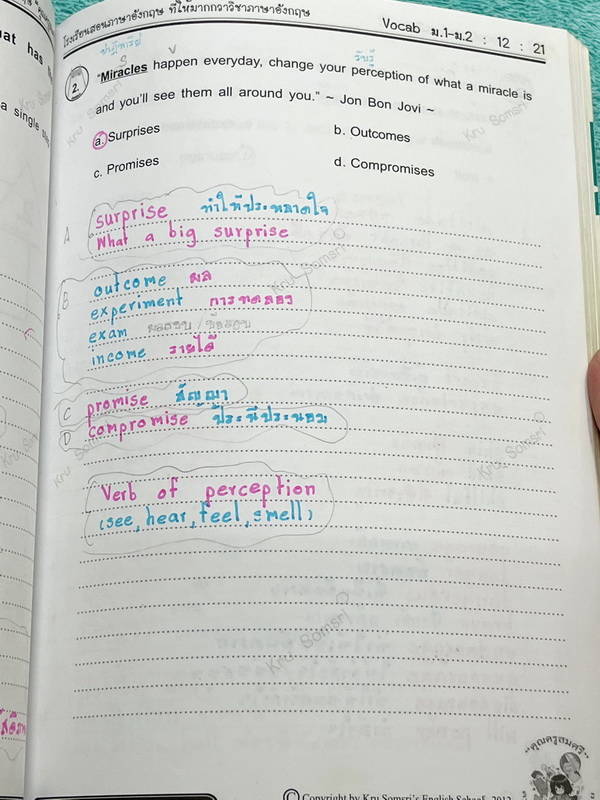 โรงเรียนสอนภาษาอังกฤษ ที่ให้มากกว่าวิชาภาษาอังกฤษ
Vocab ม.1-ม.2 : 12 : 21
ปาฏิหาริย์
S V รับรู้
2. "Miracles happen everyday, change your perception of what a miracle is
and you'll see them all around you." ~ Jon Bon Jovi ~
a. Surprises b. Outcomes
c. Promises d. Compromises
surprise ทำให้ประหลาดใจ
A What a big surprise
B outcome ผล
experiment การทดลอง
exam ผลสอบ / ข้อสอบ
income รายได้
C promise สัญญา
D compromise ประนีประนอม
Verb of perception
(see, hear, feel, smell)
Kru Somsri
Kru Somsri
Kru Somsri
Kru Somsri
Kru Somsri
Kru Somsri
"คุณครูสมศรี"
© Copyright by Kru Somsri's English School
at has
a single